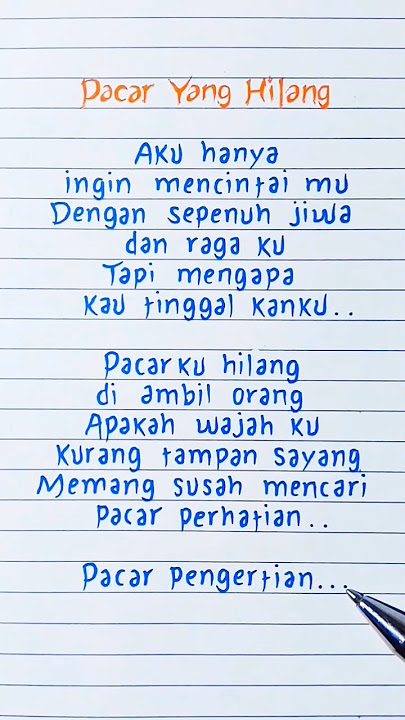 Pacar Yang Hilang
AKU hanya
ingin mencintai mu
Dengan sepenuh jiwa
dan raga KU
Tapi mengapa
Kau tinggal KanKU..
PacarKU hilang
di ambil orang
ApaKah wajah KU
Kurang tampan sayang
Memang susah mencari
Pacar perhatian..
Pacar pengertian...